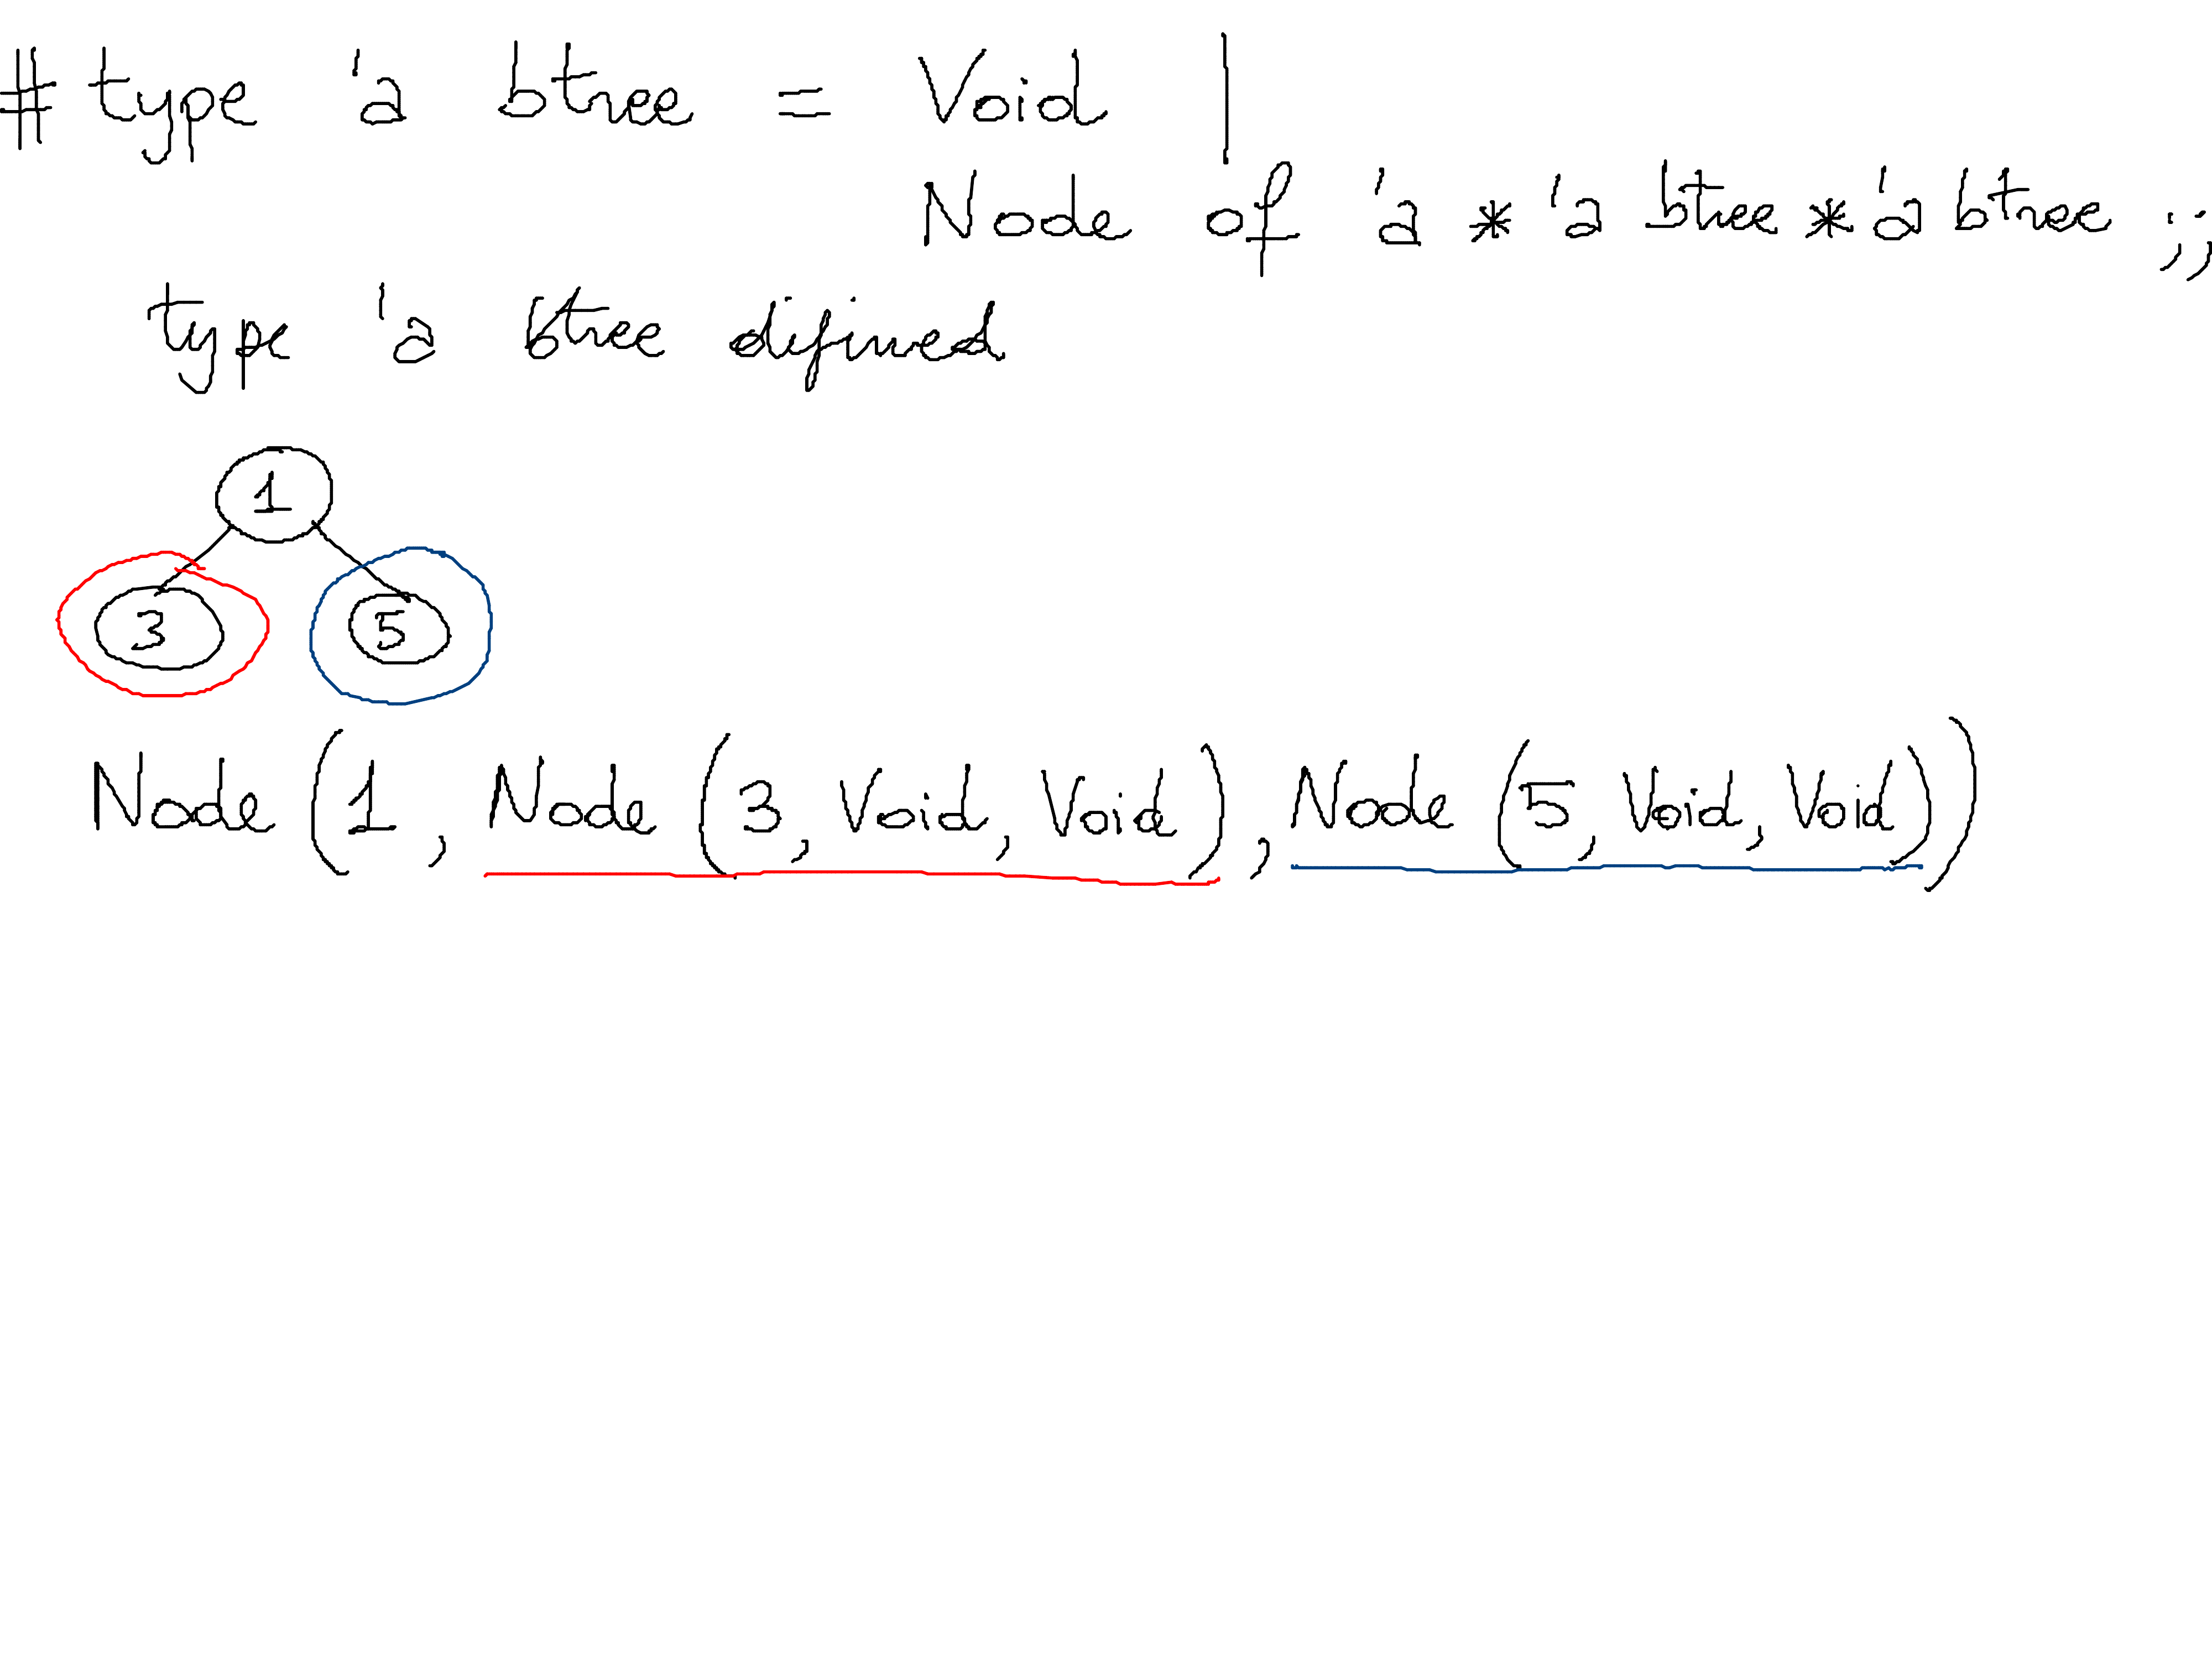 # type 'a btree = Void |
Node of 'a * 'a btree * 'a btree ;;
type 'a btree difined
1
3 5
Node (1, Node (3, Void, Void), Node (5, Void, Void))